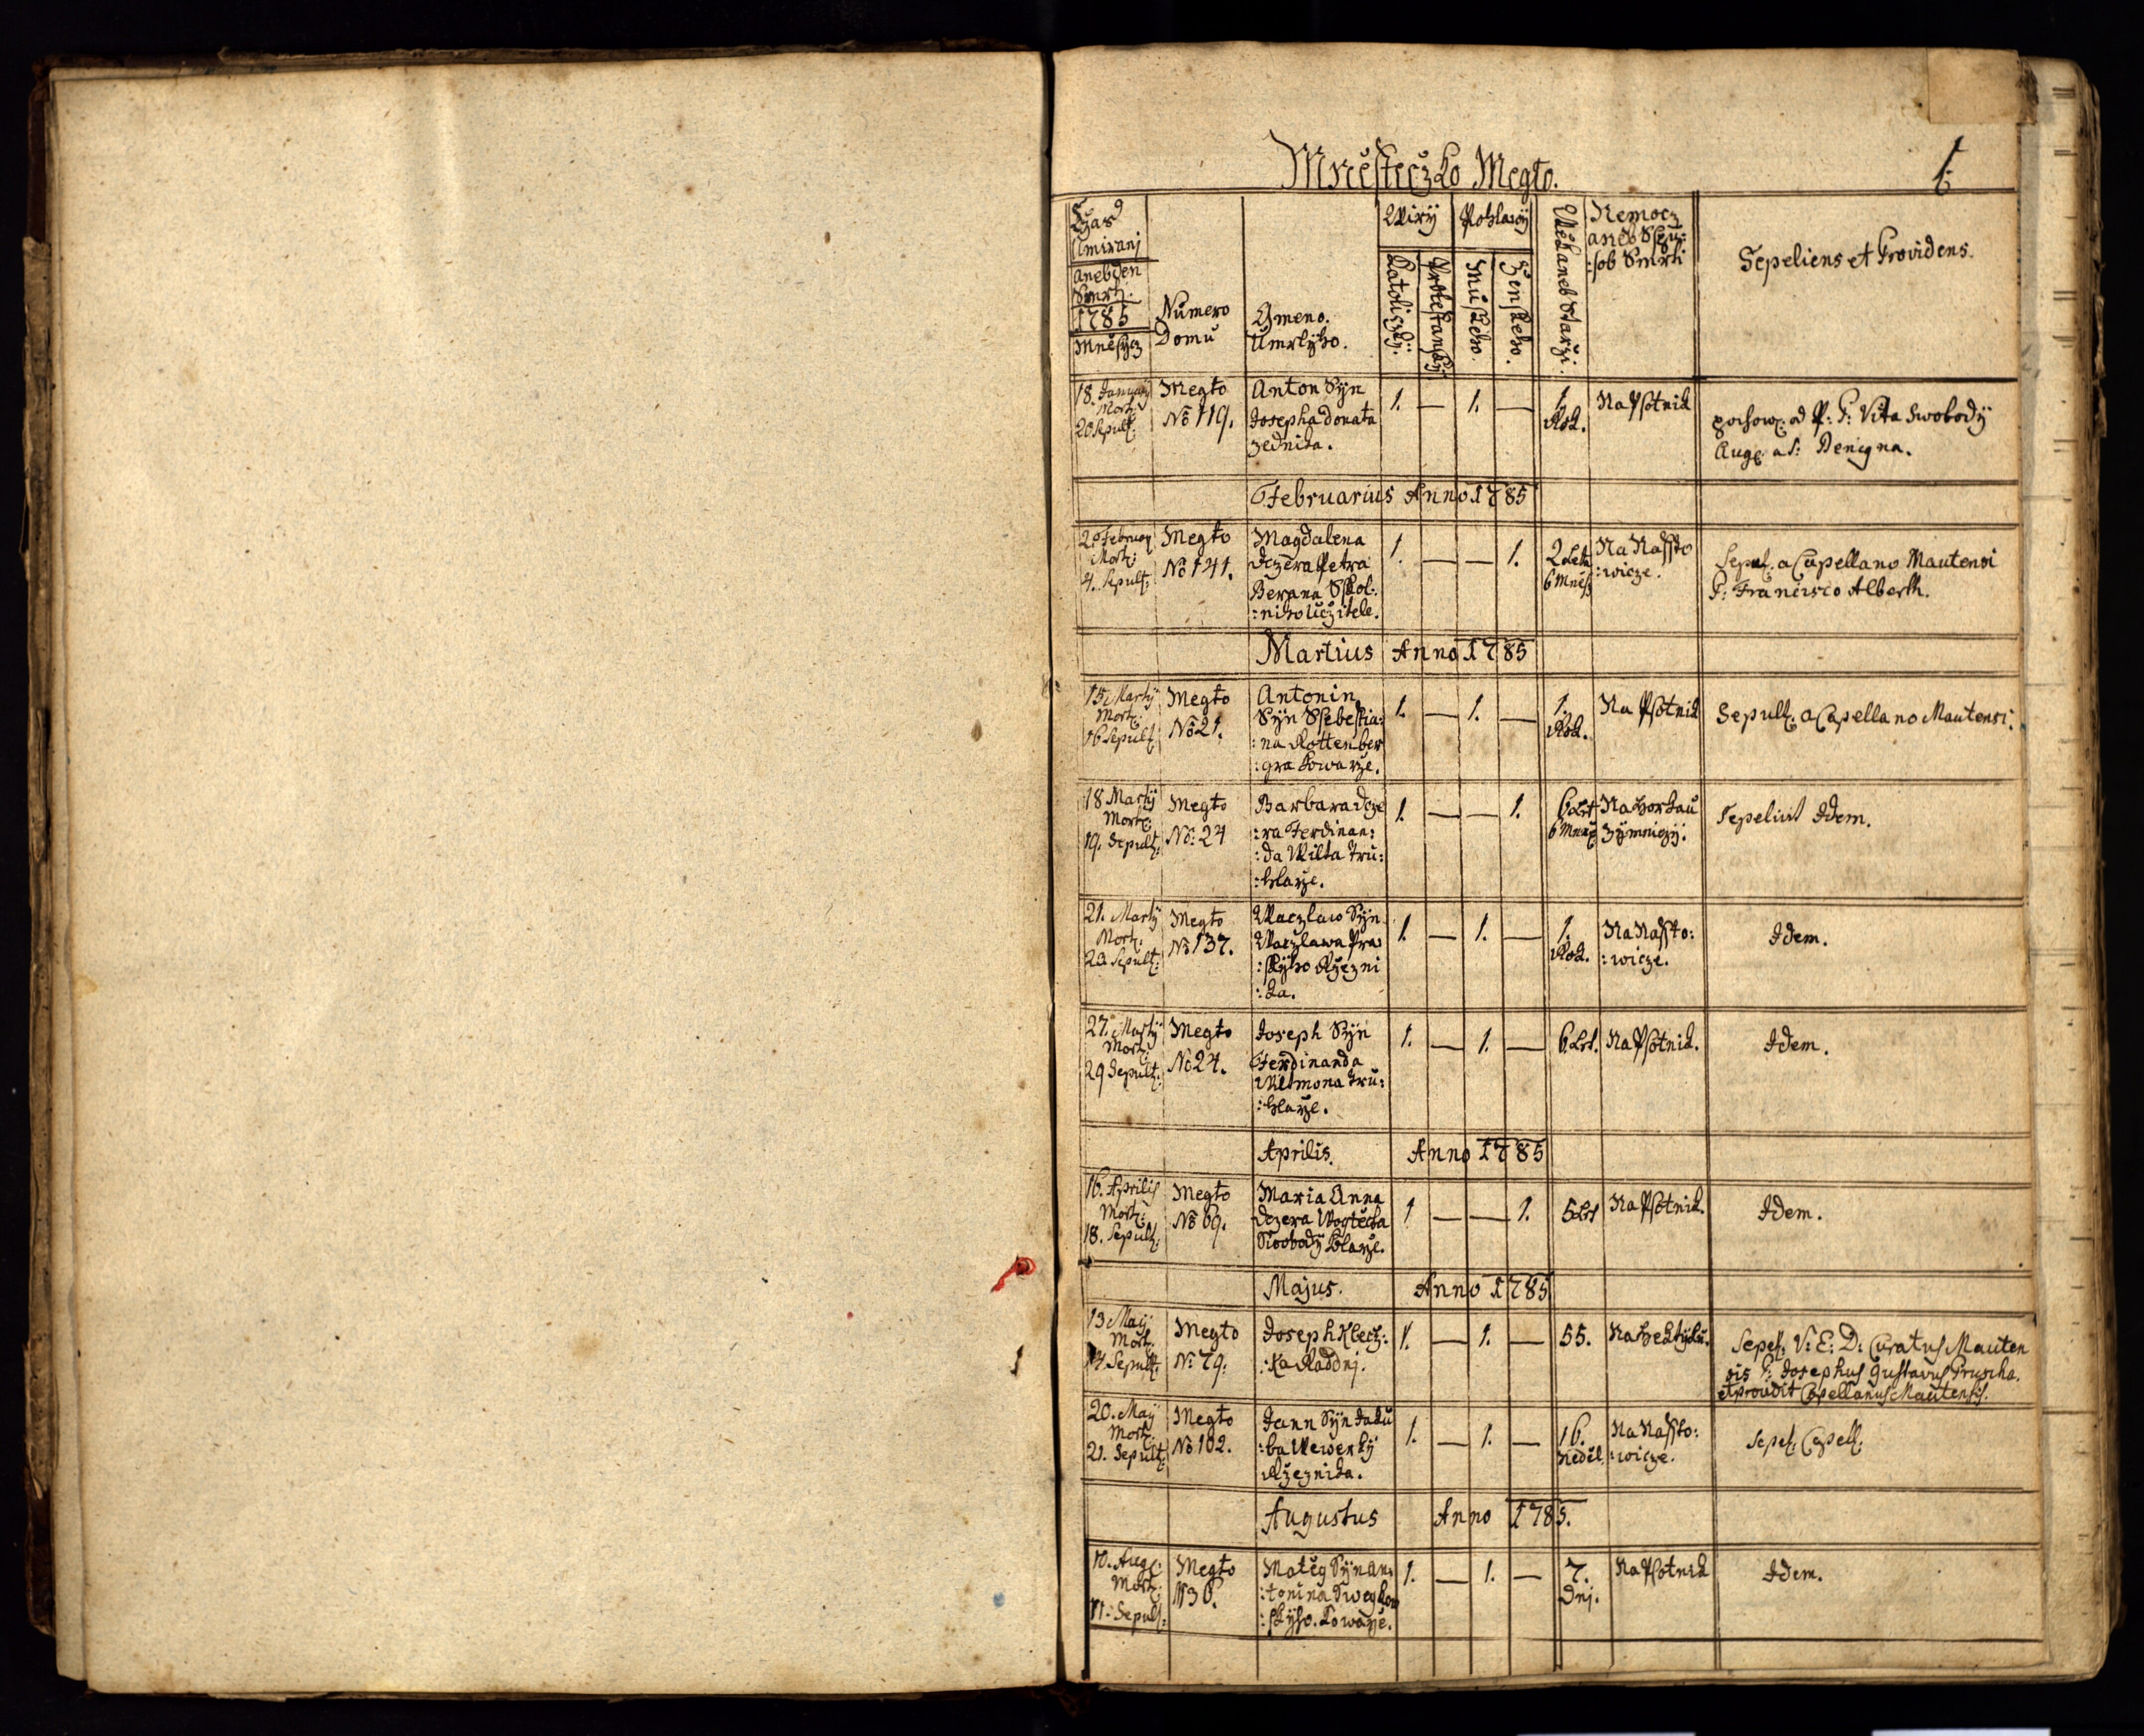 Mnèsteczko Megto.
1.
Czas
Umiranj
aneb den
Smrti.
1785
Mnèsycz
Numero
Domu
Gmeno.
Umrlyho.
Wiry
Katoliczky.
Protestansky
Pohlawy
Mužskeho.
Ženskeho.
Wèk aneb Starzi.
Nemocz
aneb Spu:
:sob Smrti
Sepeliens et Providens.
18. January
Mort:
20 Sepult:
Megto
No 119.
Anton Syn
Josepha Donata
zednika.
1. — 1. —
1.
Rok.
Na Psotnik
pochow: od P: P: Vita Swobody
Aug: a S: Benigna.
Februarius Anno 1785
2. Februar
Mort:
4. Sepult:
Megto
No 141.
Magdalena
dczera Petra
Berana Sskol:
:niho uczitele.
1. — — 1.
2 Leta
6 Mnès:
Na Nassto
:wicze.
Sepul. a Capellano Mautensi
P: Francisco Alberth.
Martius Anno 1785
15. Marty
Mort:
16 Sepult:
Megto
No 21.
Antonin
Syn Ssebestia:
:na Rottenber
:gra kowarze.
1. — 1. —
1.
Rok.
Na Psotnik
Sepult: a Capellano Mautensi.
18 Marty
Mort:
19. Sepult:
Megto
No: 24
Barbara dcze
:ra Ferdinan:
:da Wilta tru:
:hlarze.
1. — — 1.
6 Let
6 Mnes:
Na horkau
zymniczy.
Sepelivit Idem.
21. Marty
Mort:
23 Sepult:
Megto
No 137.
Waczlaw Syn
Waczlawa Pra:
:skyho Rzezni
:ka.
1. — 1. —
1.
Rok.
Na Nassto:
:wicze.
Idem.
27. Marty
Mort:
29 Sepult:
Megto
No 24.
Joseph Syn
Ferdinanda
Wiltmona tru:
:hlarze.
1. — 1. —
6 Let.
Na Psotnik.
Idem.
Aprilis. Anno 1785
16. Aprilis
Mort:
18. Sepult:
Megto
No 69.
Maria Anna
dczera Wogtècha
Swobody kolarze.
1 — — 1.
5 Let
Na Psotnik.
Idem.
Majus. Anno 1785
13 Maij
Mort:
14. Sepult:
Megto
No: 79.
Joseph Klecz:
:ka Raddnj.
1. — 1. —
55.
Na hektyku.
Sepel: V: E: D: Curatus Mauten
sis P: Josephus Gustavus Pruscha.
et providit Capellanus Mautensis.
20. May
Mort:
21. Sepult:
Megto
No 102.
Jann Syn Jaku
:ba Wewerky
Rzeznika.
1. — 1. —
16.
Nedèl
Na Nassto:
:wicze.
Sepel: Capell:
Augustus Anno 1785.
10. Aug:
Mort:
11. Sepult:
Megto
N 36.
Matèg Syn An:
:tonina Swegkow
:skyho. kowarze.
1. — 1. —
7.
Dnj.
Na Psotnik
Idem.